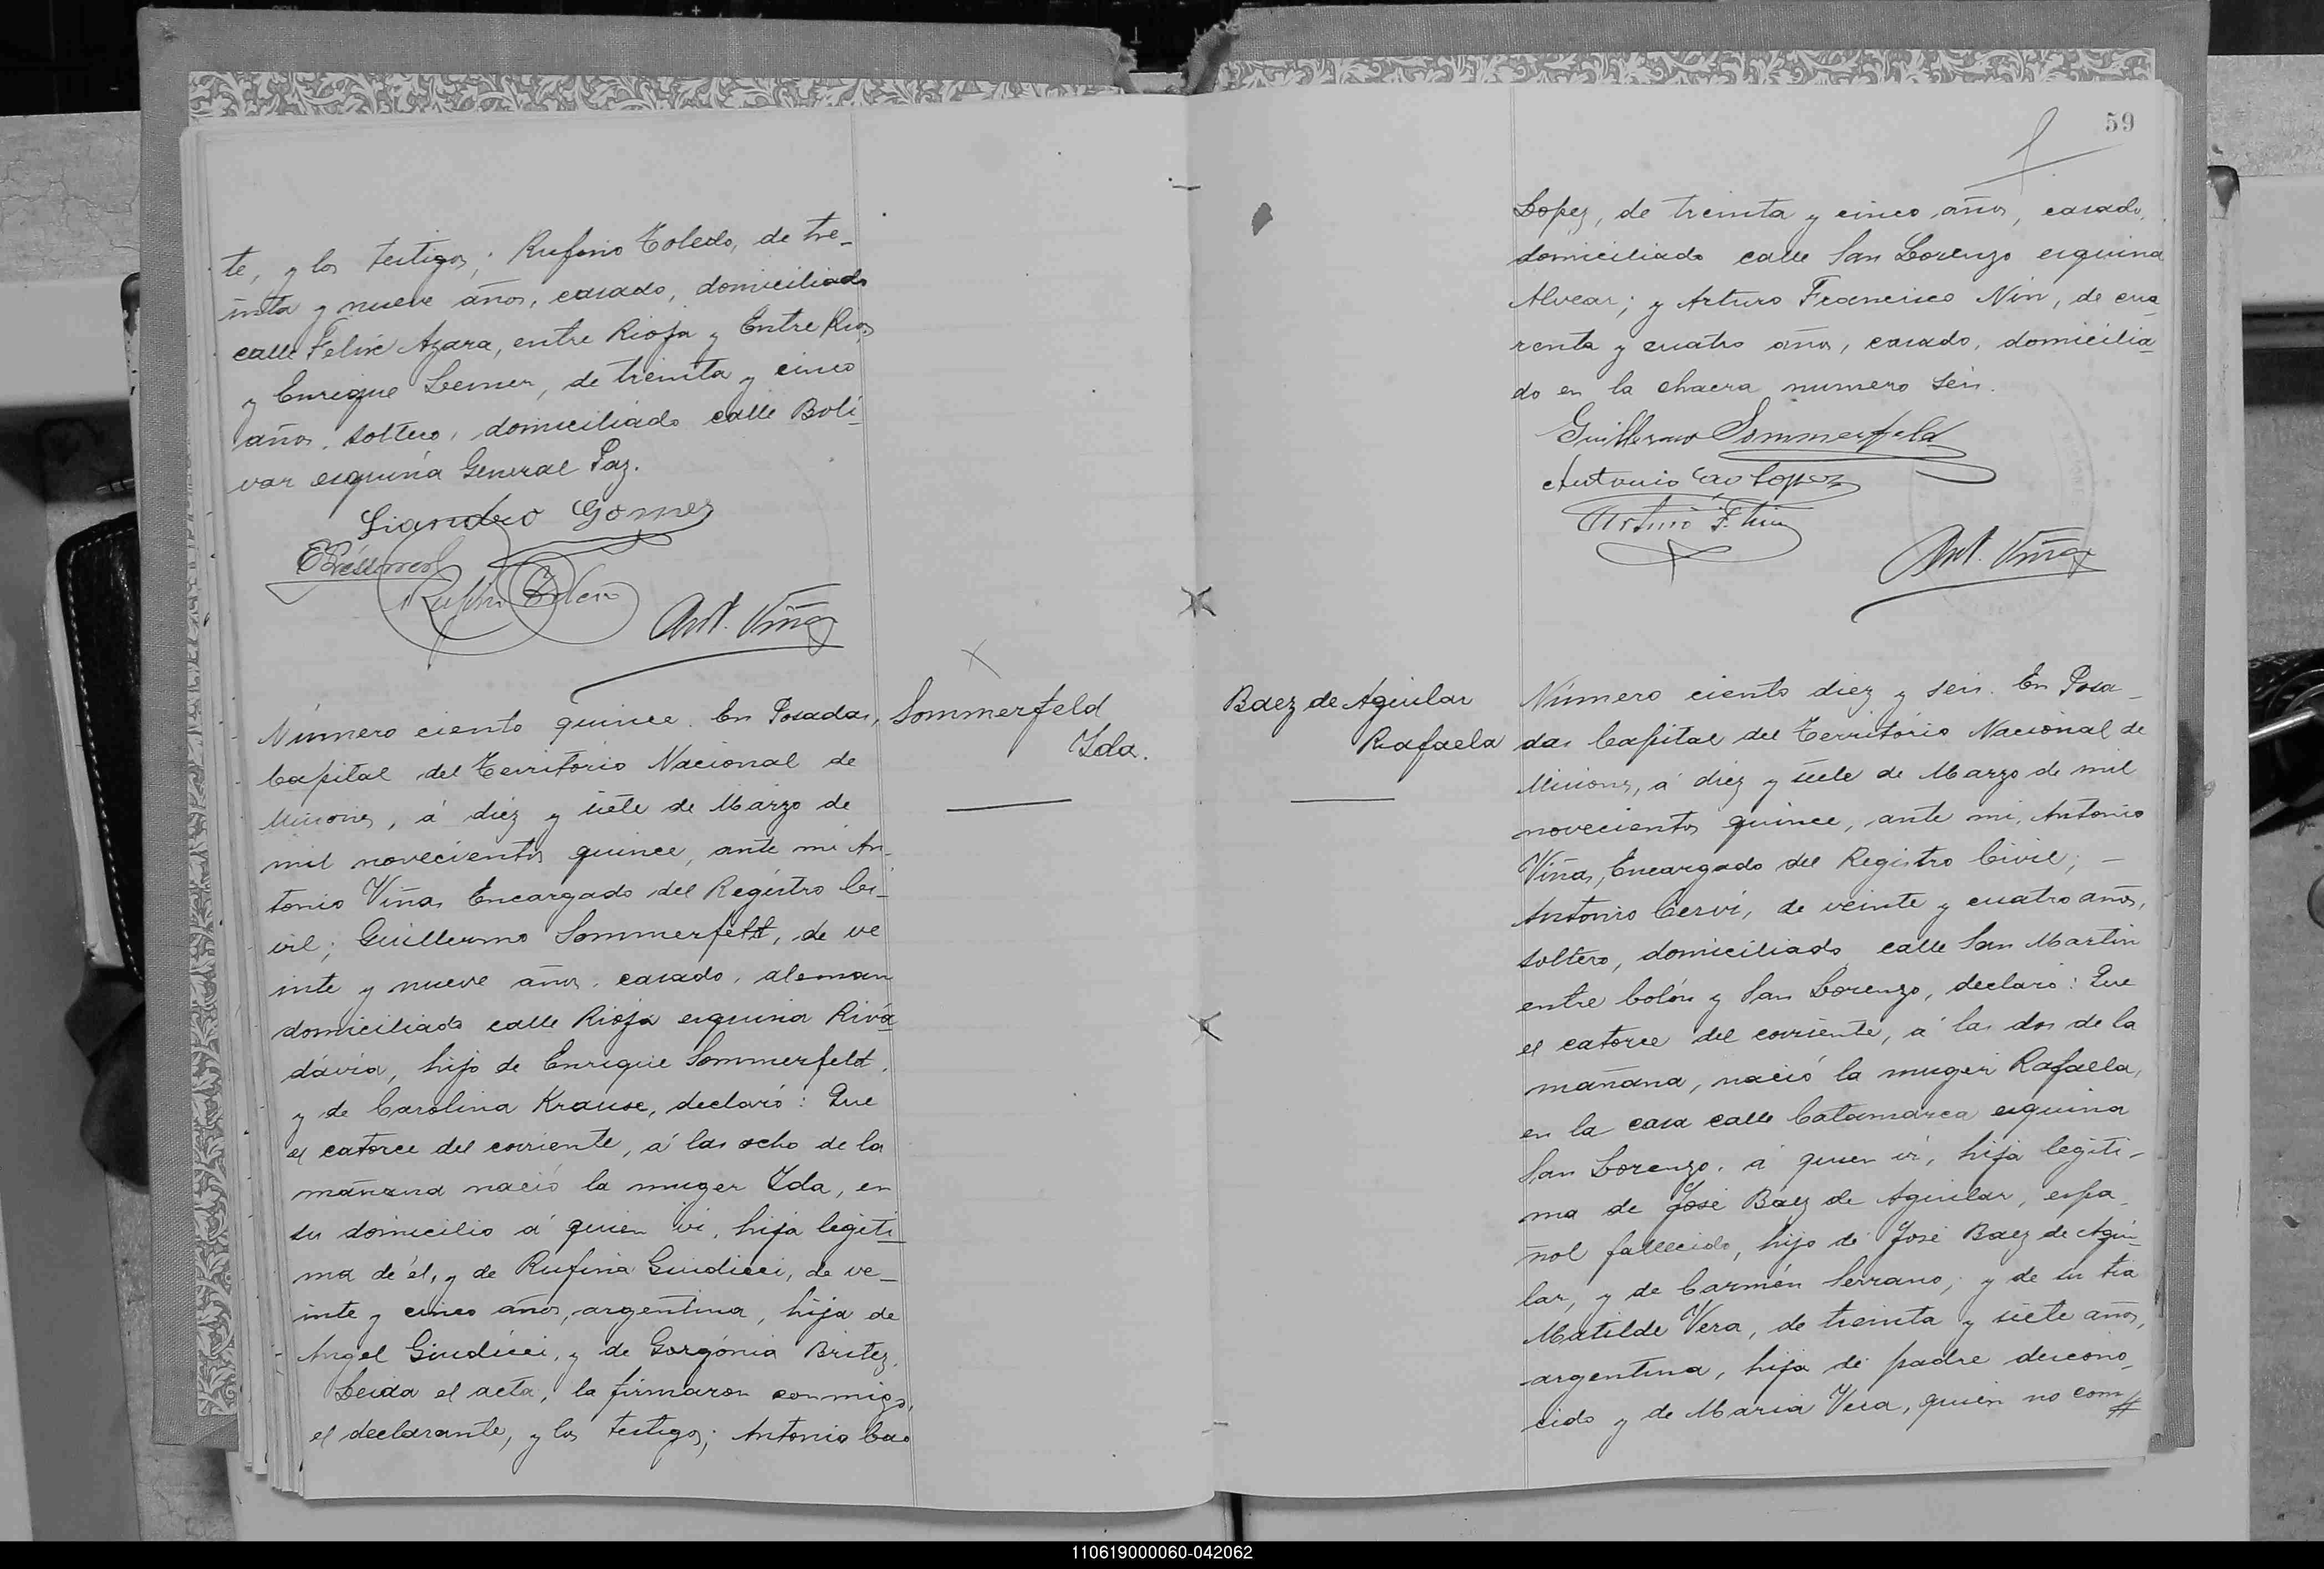 te, y los testigos; Rufino Toledo, de tre-
inta y nueve años, casado, domiciliado
calle Felix Azara, entre Rioja y Entre Rios
y Enrique Lesmer, de treinta y cinco
años, soltero, domiciliado calle Boli-
var esquina General Paz.
Liandro Gomez
Rufino Toledo
Ant. Viñas
Número ciento quince. En Posadas,
Capital del Territorio Nacional de
Misiones, á diez y siete de Marzo de
mil novecientos quince, ante mi An-
tonio Viñas, Encargado del Registro Ci-
vil; Guillermo Sommerfeld, de ve
inte y nueve años, casado, aleman
domiciliado calle Rioja esquina Riva
davia, hijo de Enrique Sommerfeld,
y de Carolina Krause, declaró: Que
el catorce del corriente, á las ocho de la
mañana nació la muger Ida, en
su domicilio á quien vi, hija legiti-
ma de él, y de Rufina Guidicci, de ve-
inte y cinco años, argentina, hija de
Angel Giudicci, y de Gorgónia Britez.
Leida el acta, la firmaron conmigo,
el declarante, y los testigos; Antonio Cao
Sommerfeld
Ida.
59
Lopez, de treinta y cinco años, casado,
domiciliado calle San Lorenzo esquina
Alvear; y Arturo Francisco Nin, de cua
renta y cuatro años, casado, domicilia
do en la chacra numero seis.
Guillermo Sommerfeld
Antonio Cao Lopez
Arturo F. Nin
Ant. Viñas
Baez de Aguilar
Rafaela
Número ciento diez y seis. En Posa-
das Capital del Territorio Nacional de
Misiones, á diez y siete de Marzo de mil
novecientos quince, ante mi, Antonio
Viñas, Encargado del Registro Civil; -
Antonio Cervi, de veinte y cuatro años,
soltero, domiciliado calle San Martin
entre Colón y San Lorenzo, declaró: Que
el catorce del corriente, á las dos de la
mañana, nació la muger Rafaela,
en la casa calle Catamarca esquina
San Lorenzo, á quien vi, hija legiti-
ma de José Baez de Aguilar, espa-
ñol fallecido, hijo de José Baez de Agui-
lar, y de Carmén Serrano; y de su tia
Matilde Vera, de treinta y siete años,
argentina, hija de padre descono-
cido y de Maria Vera, quien no com
110619000060-042062